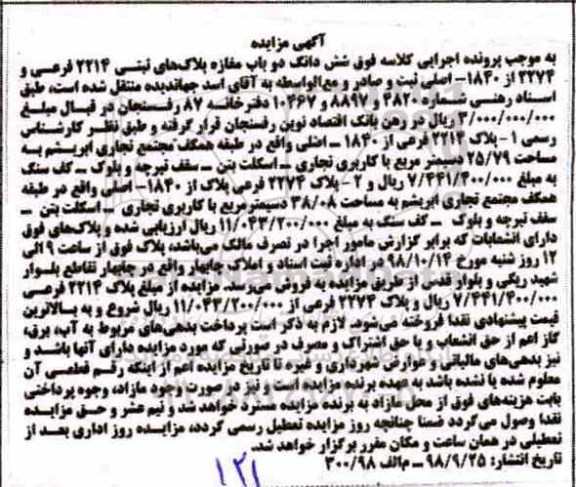 آگهی مزایده
به موجب پرونده اجرایی کلاسه فوق شش دانگ دو باب مغازه پلاک‌های ثبتی ۲۲۱۴ فرعی و
۲۲۷۴ از ۱۸۴۰- اصلی ثبت و صادر و مع‌الواسطه به آقای اسد جهاندیده منتقل شده است، طبق
اسناد رهنی شماره ۴۸۲۰ و ۸۸۹۷ و ۱۰۴۶۷ دفترخانه ۸۷ رفسنجان در قبال مبلغ
۳/۰۰۰/۰۰۰/۰۰۰ ریال در رهن بانک اقتصاد نوین رفسنجان قرار گرفته و طبق نظر کارشناس
رسمی ۱- پلاک ۲۲۱۴ فرعی از ۱۸۴۰ – اصلی واقع در طبقه همکف مجتمع تجاری ابریشم به
مساحت ۲۵/۷۹ دسیمتر مربع با کاربری تجاری – اسکلت بتن – سقف تیرچه و بلوک – کف سنگ
به مبلغ ۷/۴۴۱/۴۰۰/۰۰۰ ریال و ۲- پلاک ۲۲۷۴ فرعی پلاک از ۱۸۴۰- اصلی واقع در طبقه
همکف مجتمع تجاری ابریشم به مساحت ۳۸/۰۸ دسیمترمربع با کاربری تجاری – اسکلت بتن –
سقف تیرچه و بلوک – کف سنگ به مبلغ ۱۱/۰۴۳/۲۰۰/۰۰۰ ریال ارزیابی شده و پلاک‌های فوق
دارای انشعابات که برابر گزارش مامور اجرا در تصرف مالک می‌باشد، پلاک فوق از ساعت ۹ الی
۱۲ روز شنبه مورخ ۹۸/۱۰/۱۴ در اداره ثبت اسناد و املاک چابهار واقع در چابهار تقاطع بلوار
شهید ریگی و بلوار قدس از طریق مزایده به فروش می‌رسد. مزایده از مبلغ پلاک ۲۲۱۴ فرعی
۷/۴۴۱/۴۰۰/۰۰۰ ریال و پلاک ۲۲۷۴ فرعی از ۱۱/۰۴۳/۲۰۰/۰۰۰ ریال شروع و به بالاترین
قیمت پیشنهادی نقدا فروخته می‌شود. لازم به ذکر است پرداخت بدهی‌های مربوط به آب، برق،
گاز اعم از حق انشعاب و یا حق اشتراک و مصرف در صورتی که مورد مزایده دارای آنها باشد و
نیز بدهی‌های مالیاتی و عوارض شهرداری و غیره تا تاریخ مزایده اعم از اینکه رقم قطعی آن
معلوم شده یا نشده باشد به عهده برنده مزایده است و نیز در صورت وجود مازاد، وجوه پرداختی
بابت هزینه‌های فوق از محل مازاد به برنده مزایده مسترد خواهد شد و نیم عشر و حق مزایده
نقدا وصول می‌گردد ضمنا چنانچه روز مزایده تعطیل رسمی گردد، مزایده روز اداری بعد از
تعطیلی در همان ساعت و مکان مقرر برگزار خواهد شد.
تاریخ انتشار: ۹۸/۹/۲۵ – م‌الف ۳۰۰/۹۸
۱۲۱